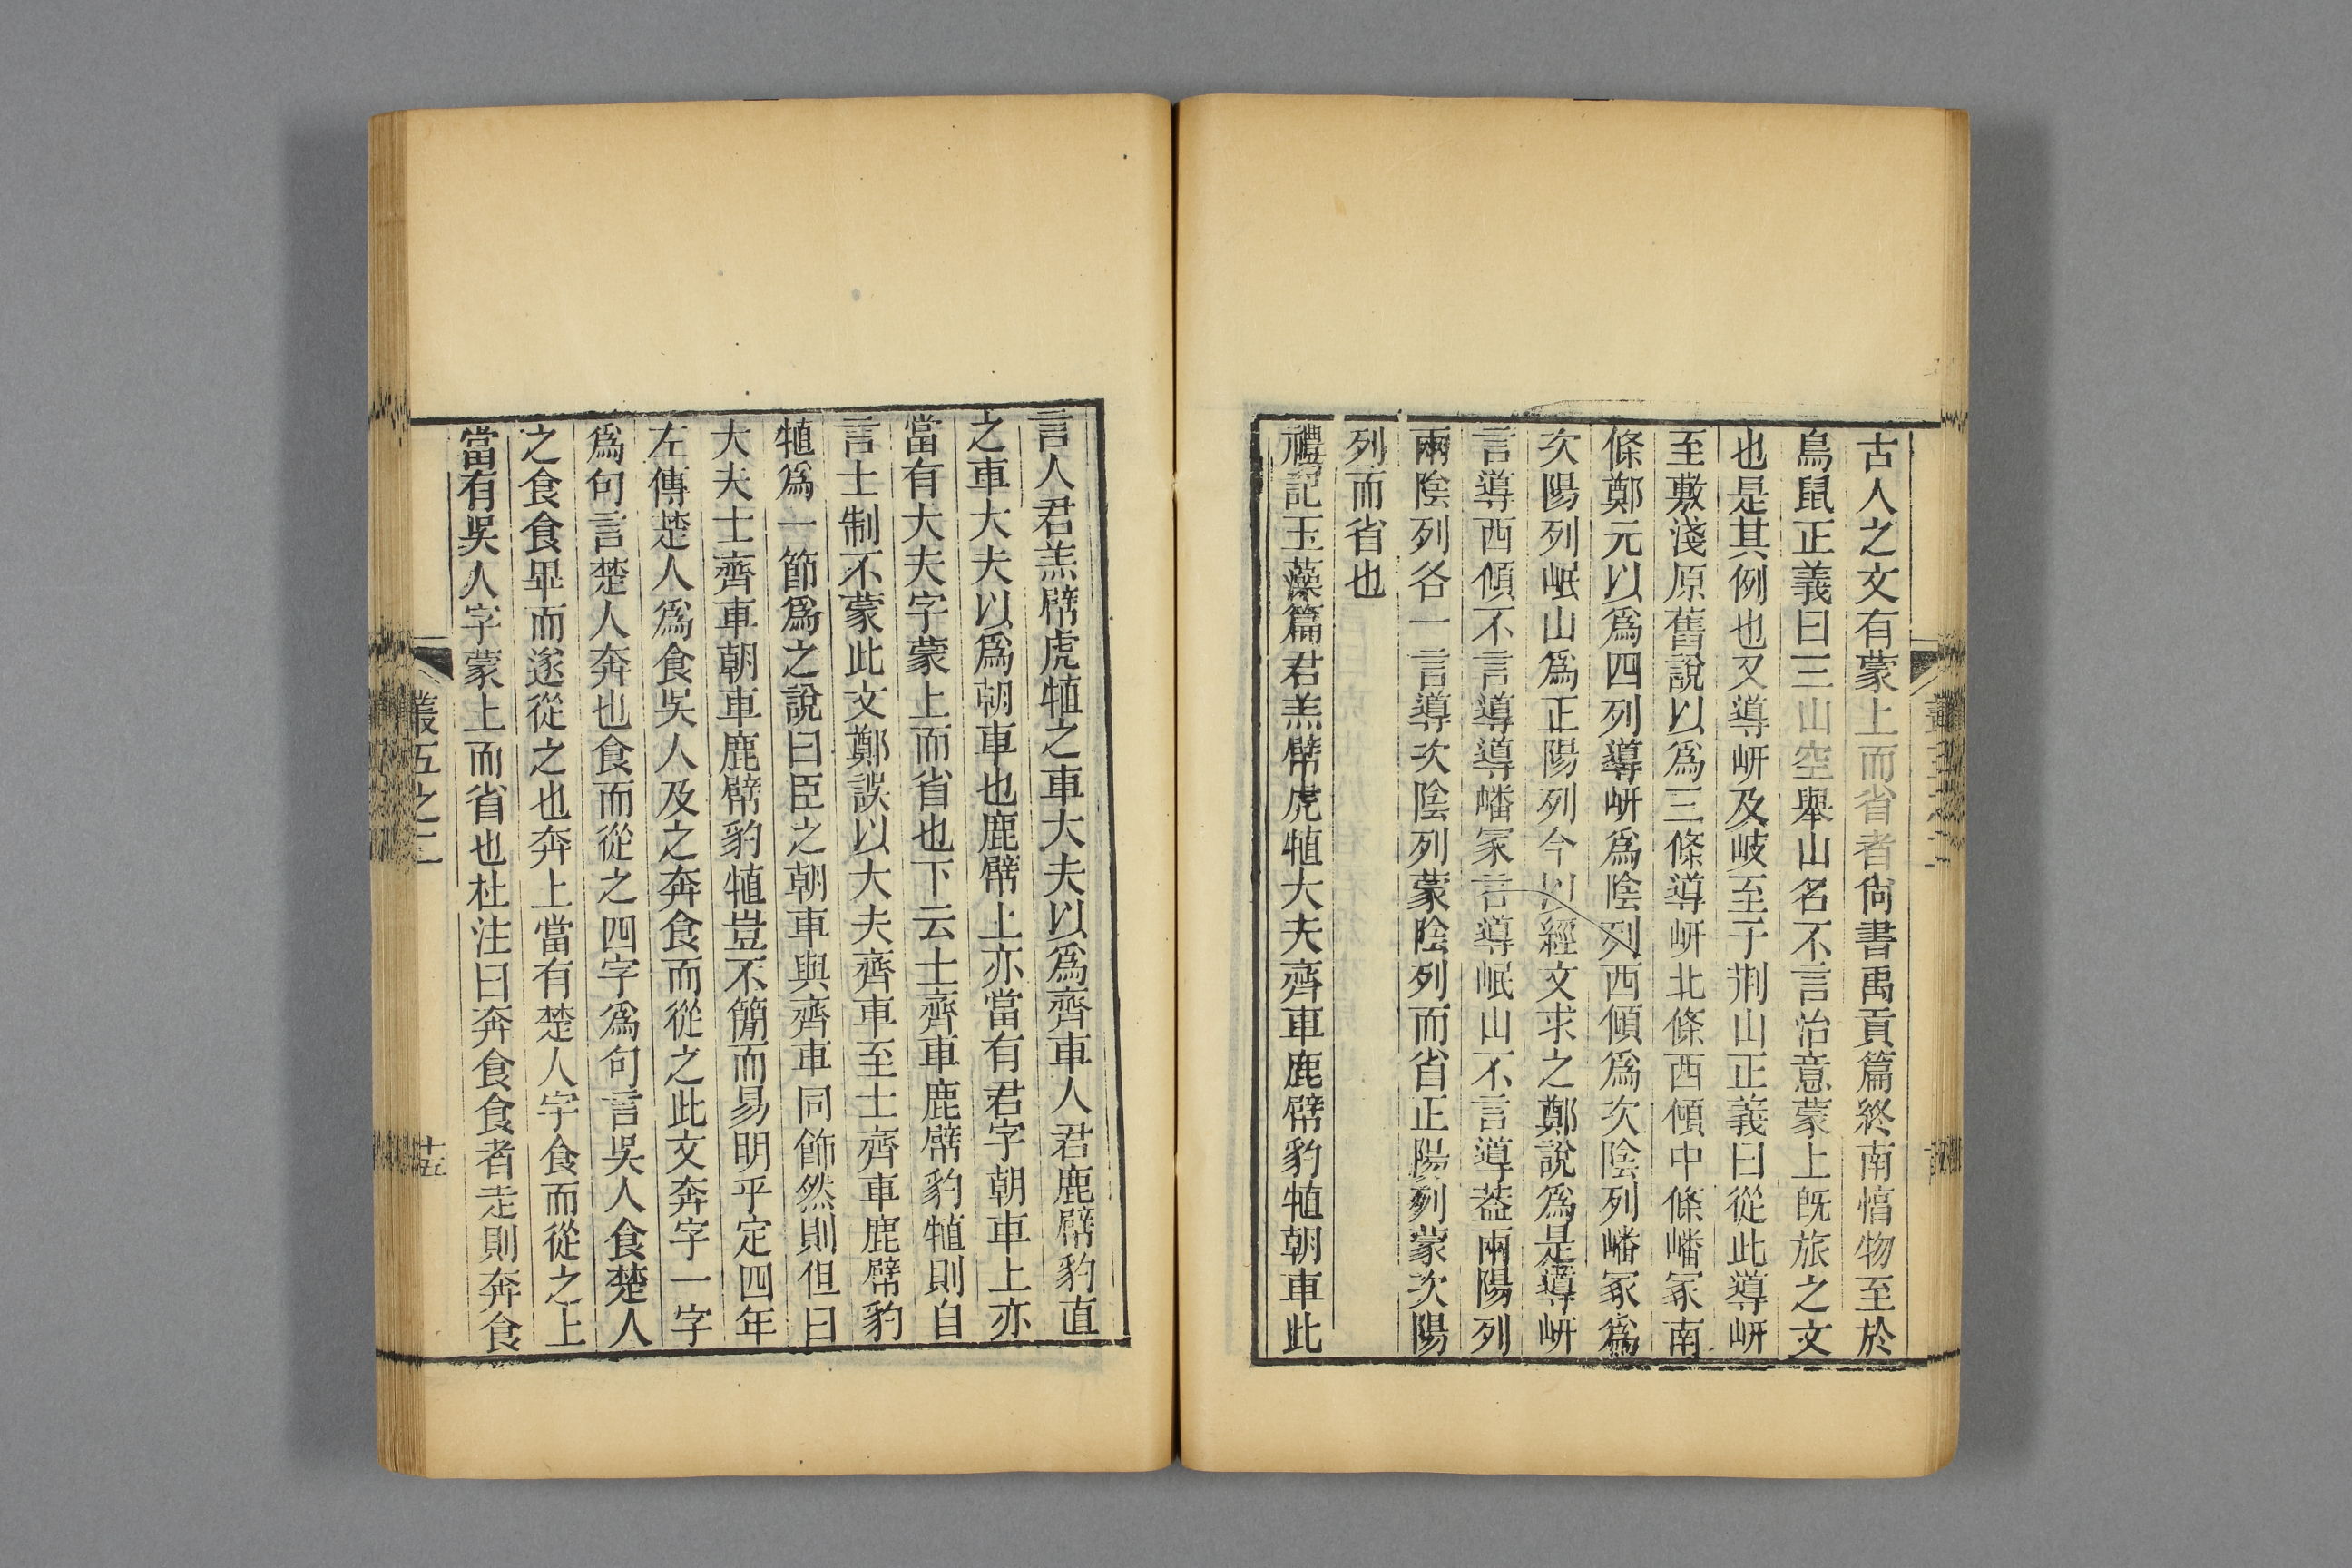 古人之文有蒙上而省者尙書禹貢篇終南惇物至於
鳥鼠正義曰三山空舉山名不言治意蒙上旣旅之文
也是其例也又導岍及岐至于荆山正義曰從此導岍
至敷淺原舊說以爲三條導岍北條西傾中條嶓冢南
條鄭元以爲四列導岍爲陰列西傾爲次陰列嶓冢爲
次陽列岷山爲正陽列今以經文求之鄭說爲是導岍
言導西傾不言導導嶓冢言導岷山不言導葢兩陽列
兩陰列各一言導次陰列蒙陰列而省正陽列蒙次陽
列而省也
禮記玉藻篇君羔幦虎犆大夫齊車鹿幦豹犆朝車此
言人君羔幦虎犆之車大夫以爲齊車人君鹿幦豹直
之車大夫以爲朝車也鹿幦上亦當有君字朝車上亦
當有大夫字蒙上而省也下云士齊車鹿幦豹犆則自
言士制不蒙此文鄭誤以大夫齊車至士齊車鹿幦豹
犆爲一節爲之說曰臣之朝車與齊車同飾然則但曰
大夫士齊車朝車鹿幦豹犆豈不簡而易明乎定四年
左傳楚人爲食吳人及之奔食而從之此文奔字一字
爲句言楚人奔也食而從之四字爲句言吳人食楚人
之食食畢而遂從之也奔上當有楚人字食而從之上
當有吳人字蒙上而省也杜注曰奔食食者走則奔食
叢五之二
十五